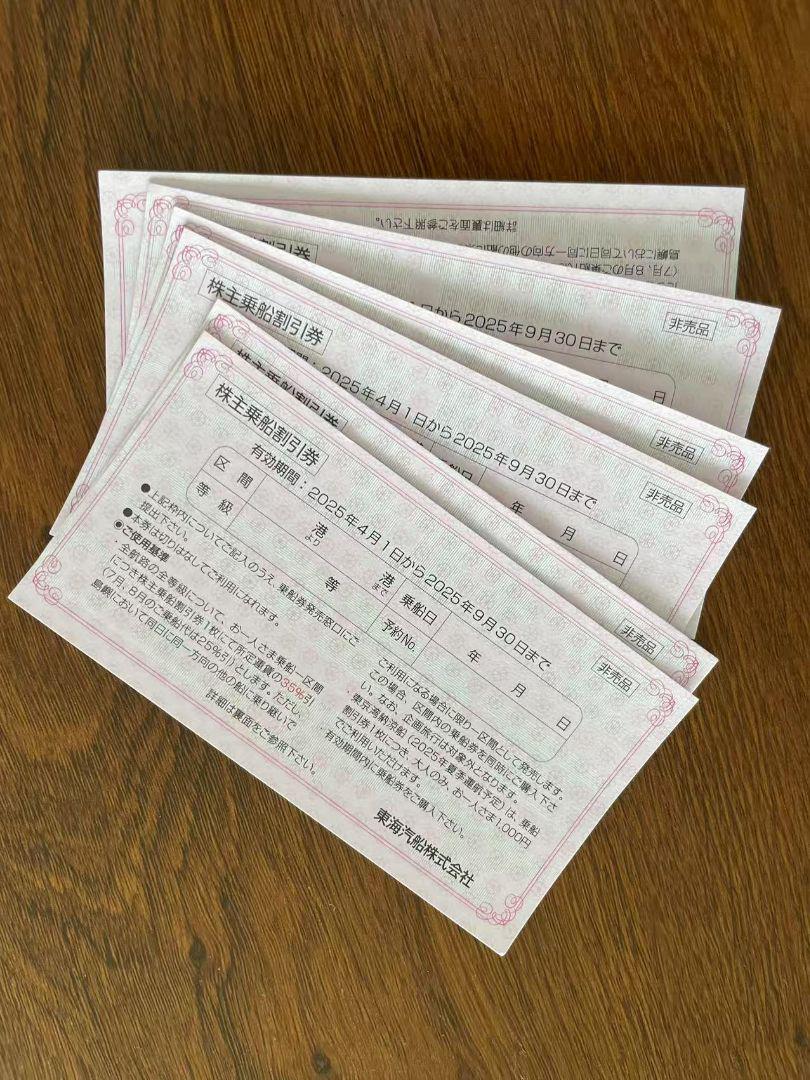 詳細は裏面をご参照下さい。
島嶼において同日に同一方向の他の船に
(7月、8月のご乗船代
につ
割引券
日から2025年9月30日まで
非売品
日
株主乗船割引券
2025年4月1日から2025年9月30日まで
非売品
年 月 日
株主乗船割引券
非売品
株主乗船割引券
有効期間:2025年4月1日から2025年9月30日まで
非売品
区間 港より 港まで 乗船日 年 月 日
等級 等 予約No.
●上記枠内についてご記入のうえ、乗船券発売窓口にご
提出下さい。
●本券は切りはなしてご利用になれます。
●ご使用基準
・全航路の全等級について、お一人さま乗船一区間
につき株主乗船割引券1枚にて所定運賃の35%引
(7月、8月のご乗船代は25%引)とします。ただし、
島嶼において同日に同一方向の他の船に乗り継いで
詳細は裏面をご参照下さい。
ご利用になる場合に限り一区間として発売します。
この場合、区間内の乗船券を同時にご購入下さ
い。なお、企画旅行は対象外となります。
・東京湾納涼船(2025年夏季運航予定)は、乗船
割引券1枚につき、大人のみ、お一人さま1,000円
でご利用いただけます。
有効期間内に乗船券をご購入下さい。
東海汽船株式会社